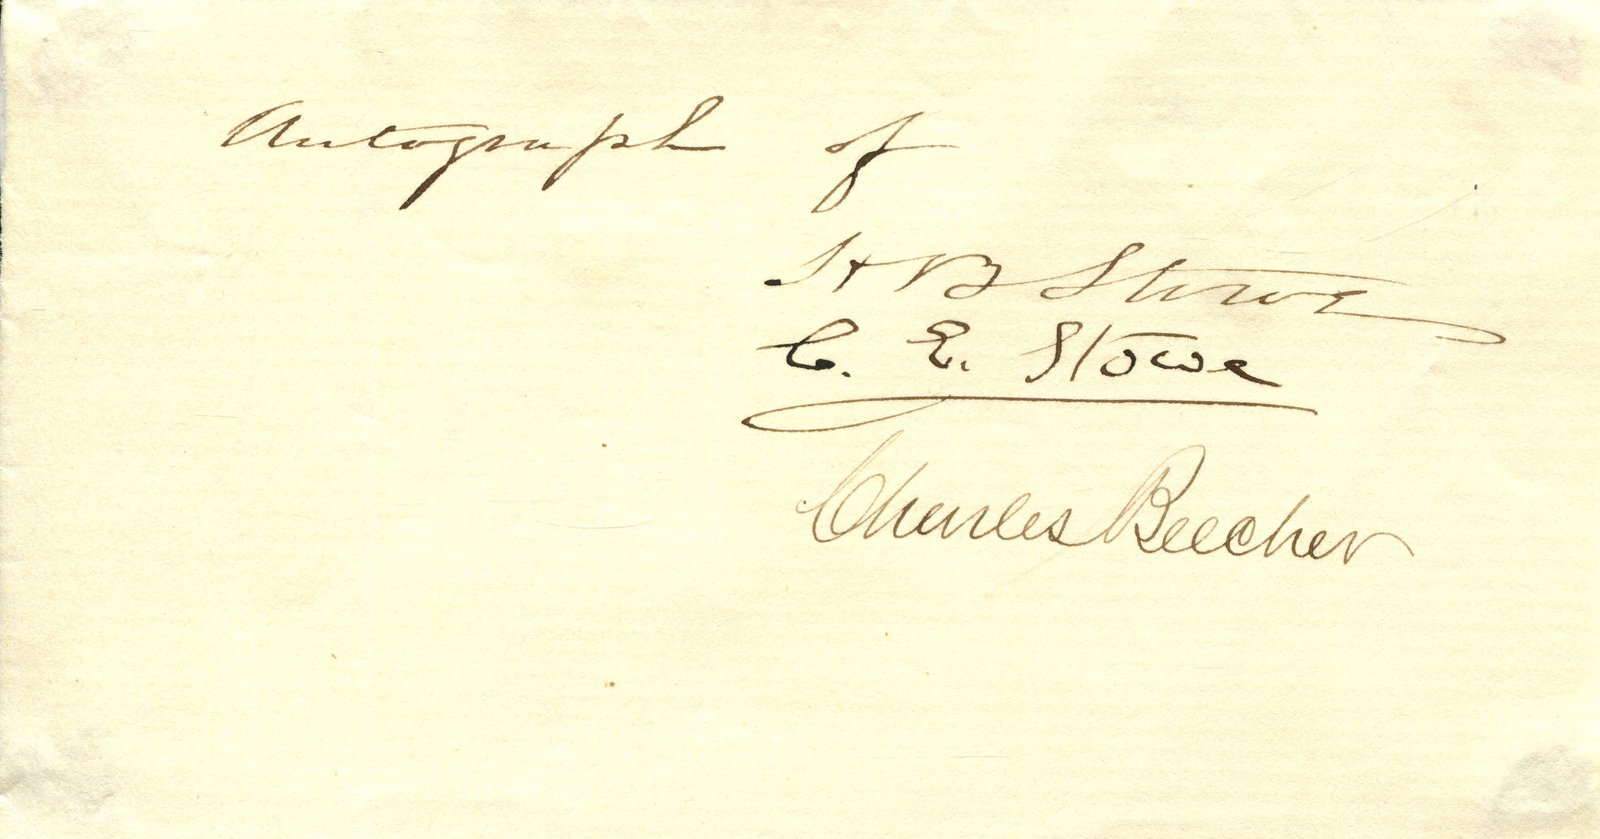 Autograph of
H B Stowe
C. E. Stowe
Charles Beecher